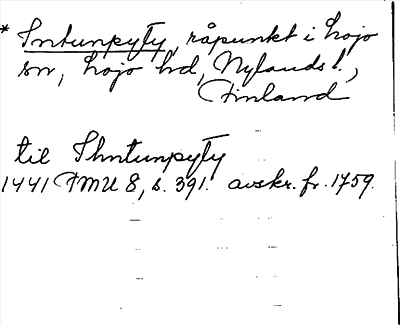 * Sntunpyty, råpunkt i Lojo
sn, Lojo hd, Nylands l.,
Finland
til Shntunpyty
1441 FMU 8, s. 391. avskr. fr. 1759.